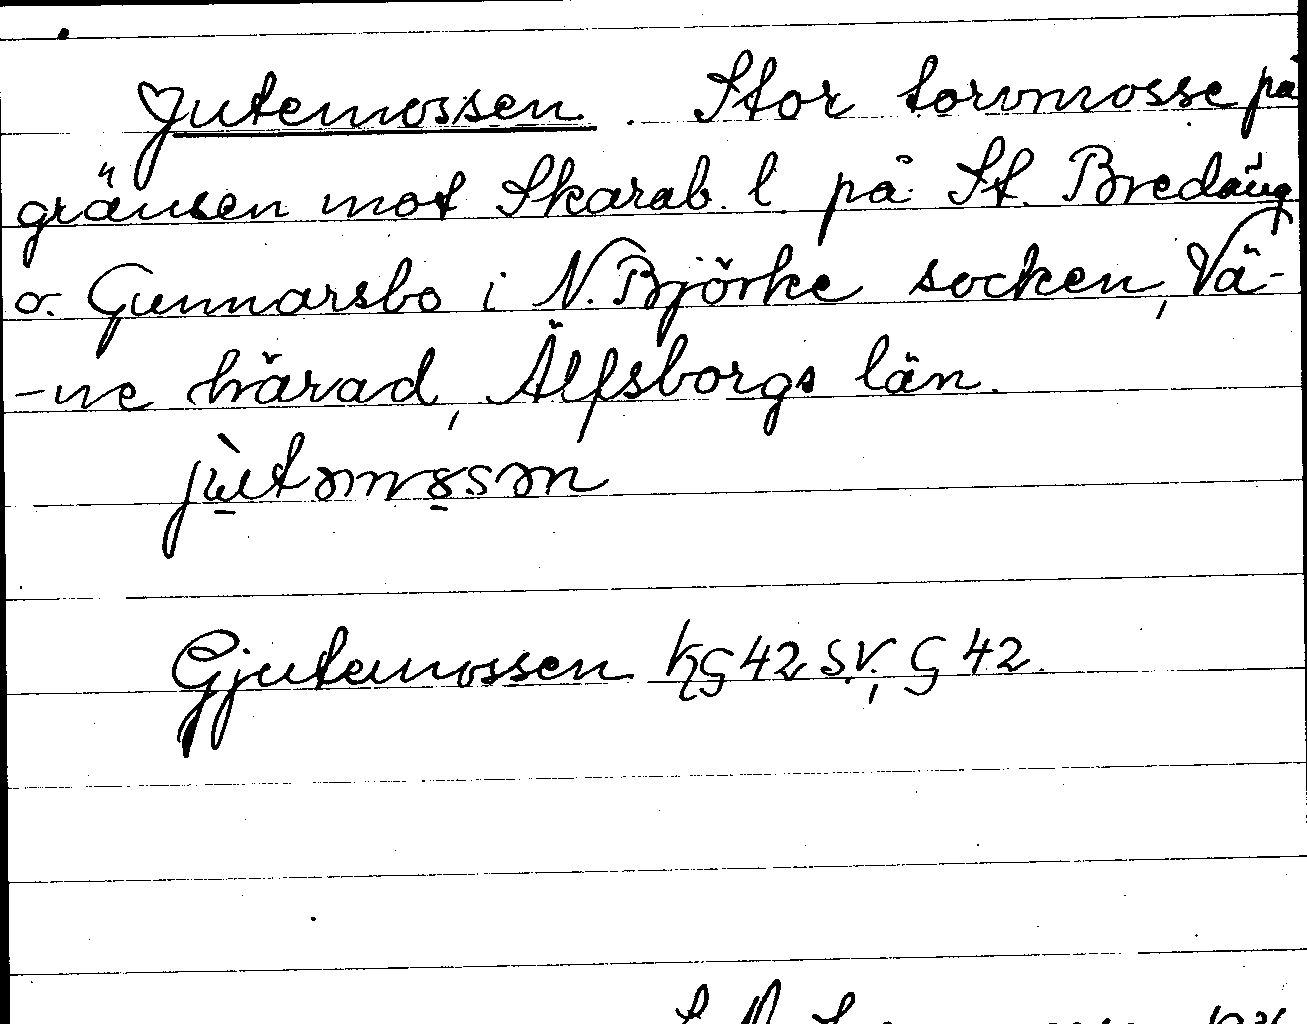 Jutemossen. Stor torvmosse på
gränsen mot Skarab. l. på St. Bredäng
o. Gunnarsbo i N. Björke socken, Vä-
-ne härad, Älfsborgs län.
jùtəmɷsən
Gjutemossen KG 42 S.V., G 42.